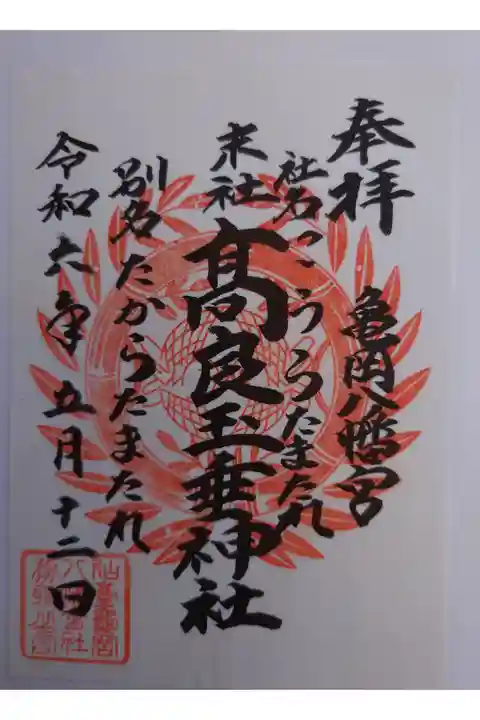 奉拝
亀岡八幡宮
社名こうらたまたれ
末社
高良玉垂神社
別名たからたまたれ
令和六年五月十二日